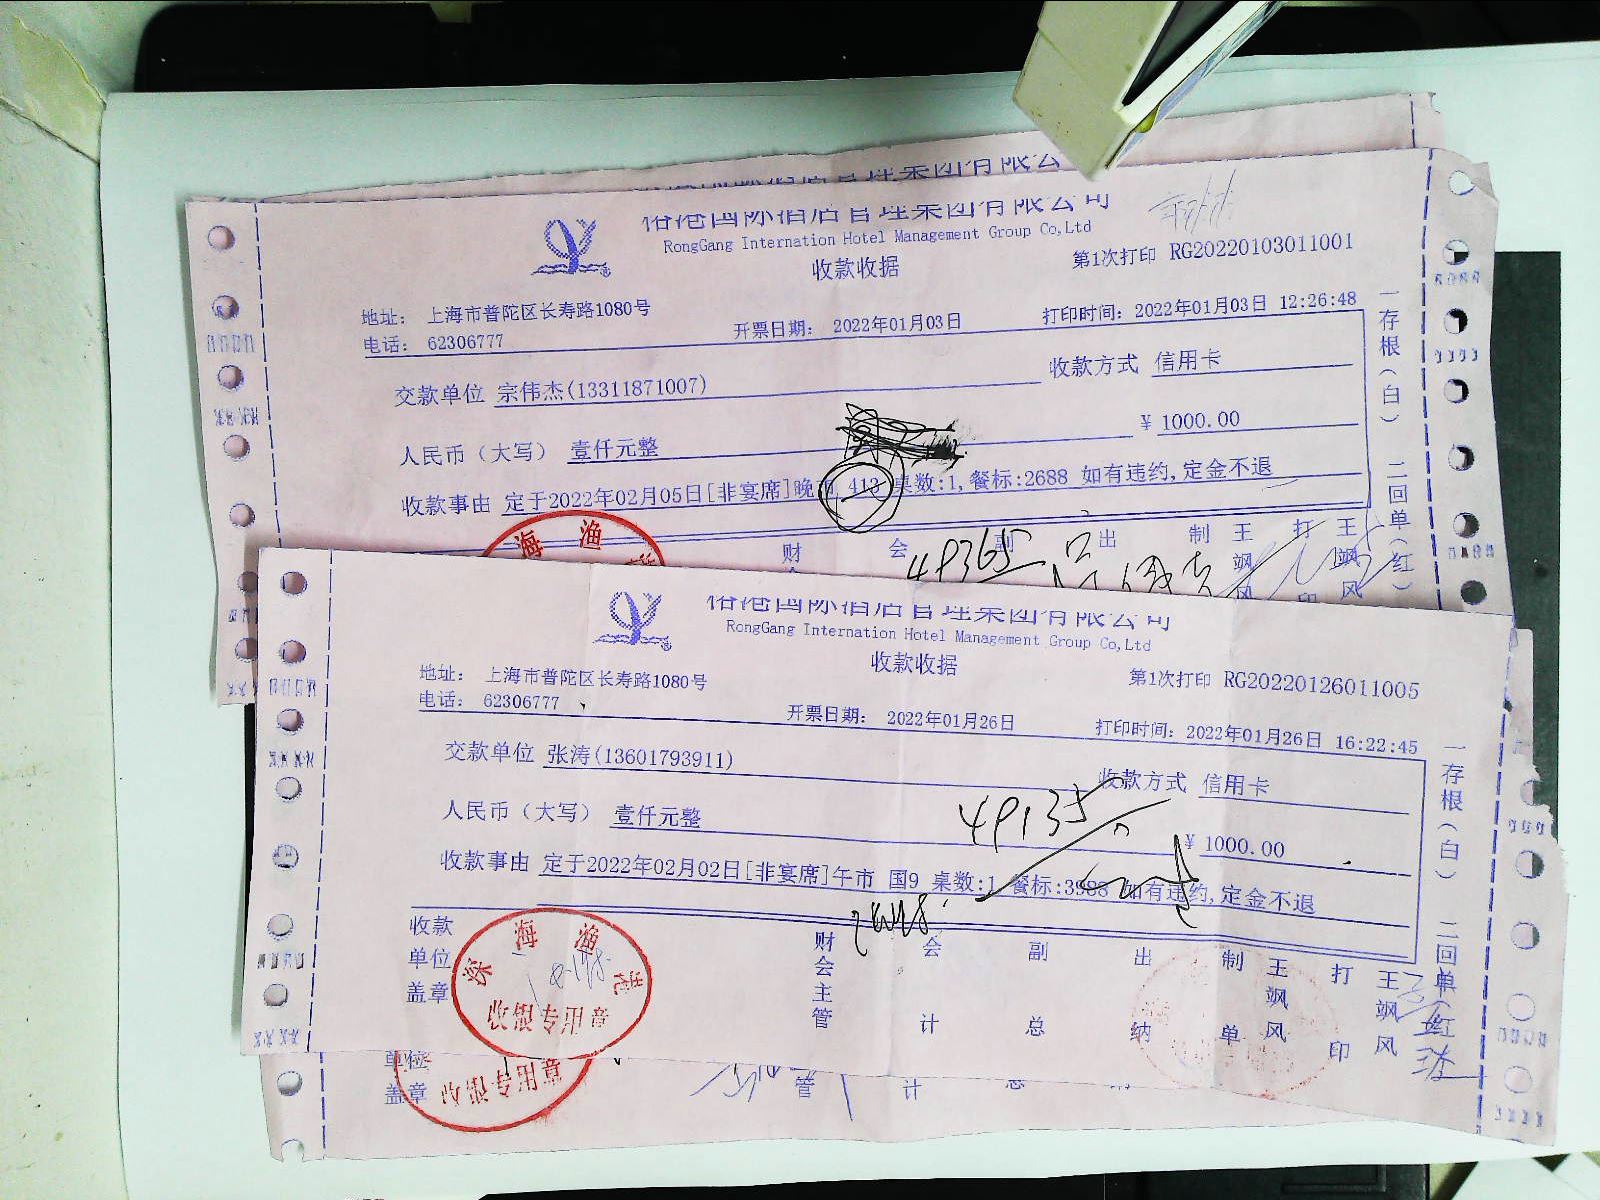 裕港国际酒店管理集团有限公司
RongGang Internation Hotel Management Group Co,Ltd
收款收据
第1次打印 RG20220103011001
地址: 上海市普陀区长寿路1080号
电话: 62306777
开票日期: 2022年01月03日
打印时间: 2022年01月03日 12:26:48
交款单位 宗伟杰(13311871007)
收款方式 信用卡
人民币(大写) 壹仟元整
¥ 1000.00
收款事由 定于2022年02月05日[非宴席]晚市 413 桌数:1,餐标:2688 如有违约,定金不退
一存根(白) 二回单(红)
财 会 副 出 制 王飒风 打印 王飒风
49365
裕港国际酒店管理集团有限公司
RongGang Internation Hotel Management Group Co,Ltd
收款收据
第1次打印 RG20220126011005
地址: 上海市普陀区长寿路1080号
电话: 62306777
开票日期: 2022年01月26日
打印时间: 2022年01月26日 16:22:45
交款单位 张涛(13601793911)
收款方式 信用卡
人民币(大写) 壹仟元整
49135
¥ 1000.00
收款事由 定于2022年02月02日[非宴席]午市 国9 桌数:1 餐标:3988 如有违约,定金不退
一存根(白) 二回单(红)
收款单位盖章
财会主管 会计 副总 出纳 制单 王飒风 打印 王飒风
深海渔港
单位
盖章
管 计 总